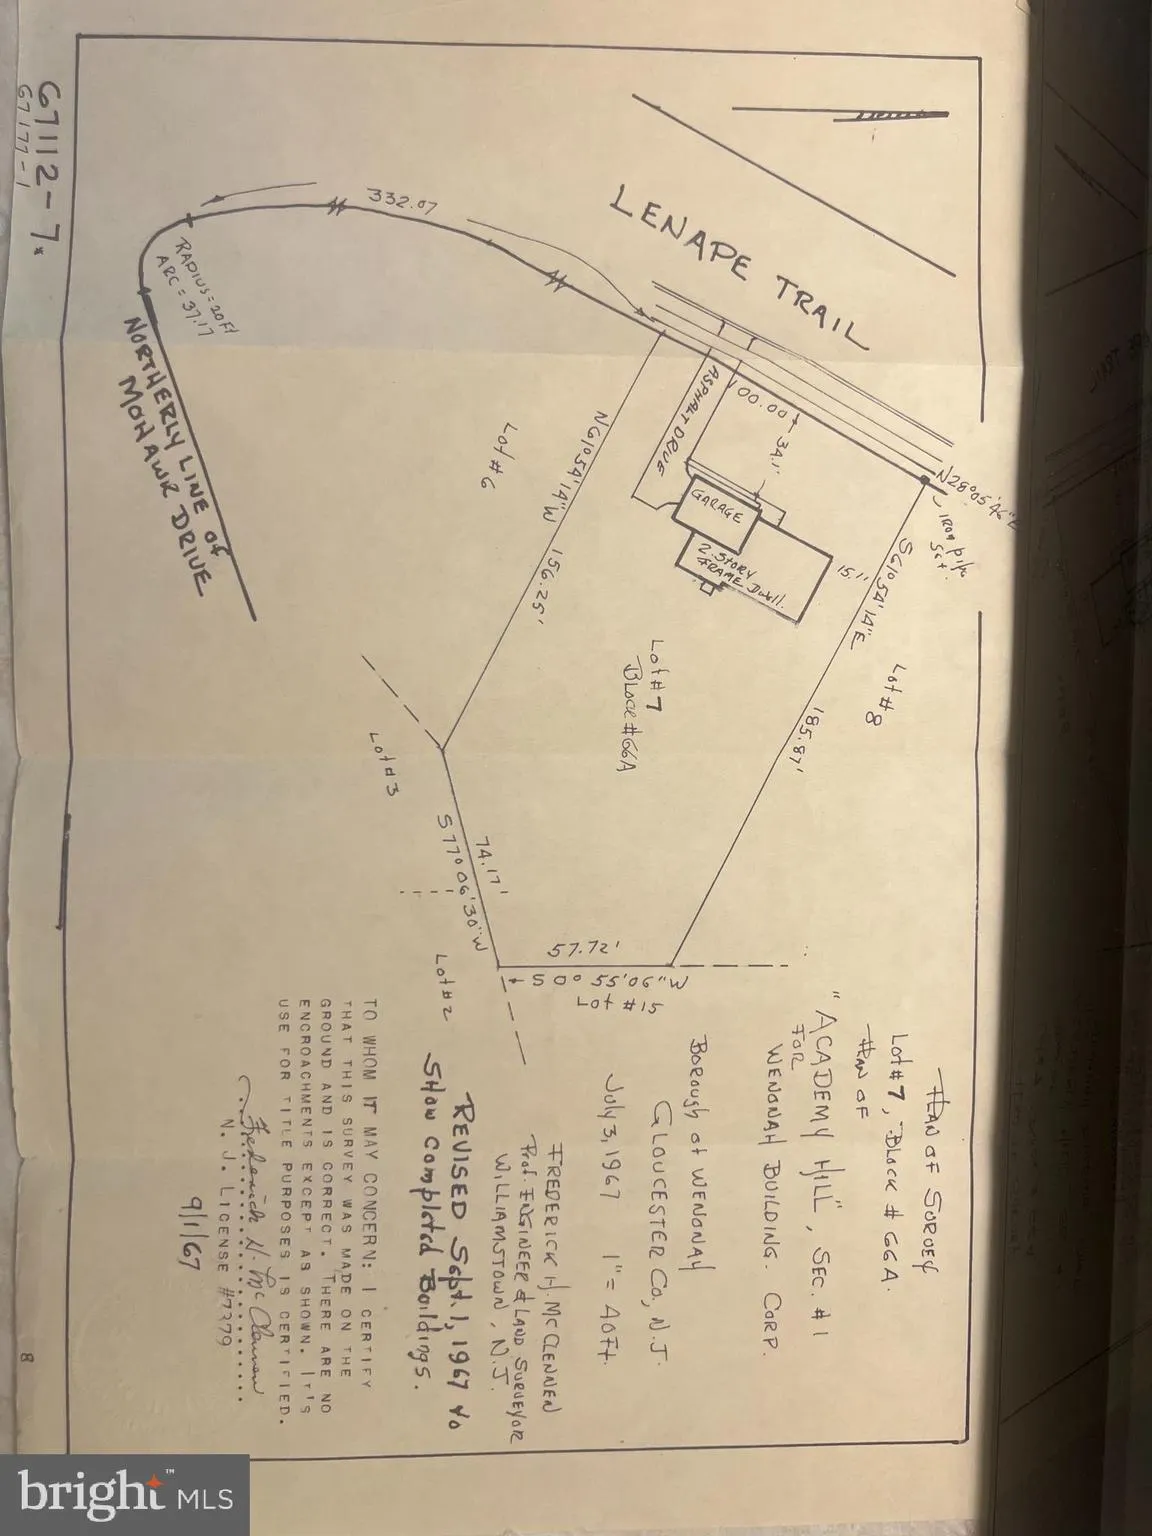 67112-7.
67177-1
LENAPE TRAIL
332.07
RADIUS = 20 Ft
ARC = 37.17
NORTHERLY LINE OF
MOHAWK DRIVE
N28°05'46"E
IRON pipe
Set.
100.00
34.1'
ASPHALT DRIVE
GARAGE
2. STORY
FRAME Dwell.
15.1'
N61°54'14"W 156.25'
S61°54'14"E
185.87'
Lot #6
Lot #7
BLOCK #66A
Lot #8
Lot #3
74.17'
S77°06'30"W
57.72'
S 0° 55'06" W
Lot #15
Lot #2
PLAN OF SURVEY
Lot #7, BLOCK # 66A.
PLAN OF
"ACADEMY HILL", SEC. #1
FOR
WENONAH BUILDING. CORP.
BOROUGH of WENONAH
GLOUCESTER CO., N.J.
July 3, 1967 1" = 40Ft.
FREDERICK H. McCLENNEN
Prof. ENGINEER & LAND SURVEYOR
WILLIAMSTOWN, N.J.
REVISED Sept. 1, 1967 to
SHOW Completed Buildings.
TO WHOM IT MAY CONCERN: I CERTIFY
THAT THIS SURVEY WAS MADE ON THE
GROUND AND IS CORRECT. THERE ARE NO
ENCROACHMENTS EXCEPT AS SHOWN. ITS
USE FOR TITLE PURPOSES IS CERTIFIED.
Frederick H. McClennen
N. J. LICENSE #7379
9/1/67
8
bright™ MLS